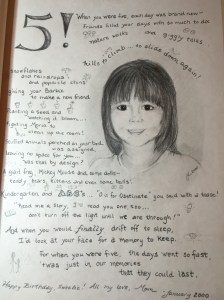 5!
When you were five, each day was brand new—
Friends filled your days with so much to do:
Nature walks and giggly talks
Hills to climb — to slide down again!
Sunflowers
and raindrops
and popsicle sticks!
giving your Barbie
to make a new friend
Planting a seed and
watching it grow...
Getting
to clean up the mess!
Stuffed animals perched on your bed
as assigned,
leaving no space for you
was that by design?
A
girl, Mickey Mouse and
dolls—
teddy bears, kittens and even some balls!
Kindergarten and ABC's
"O is for Obstinate" you said with a
"Read me a story, I'll read you one, too...
don't turn off the light until we are through!"
And when you would finally drift off to sleep,
I'd look at your face for a memory to keep.
For when you were five, the days went so fast
'twas just in our memories
that they could last.
Happy Birthday
All my love, Mom
January 2000